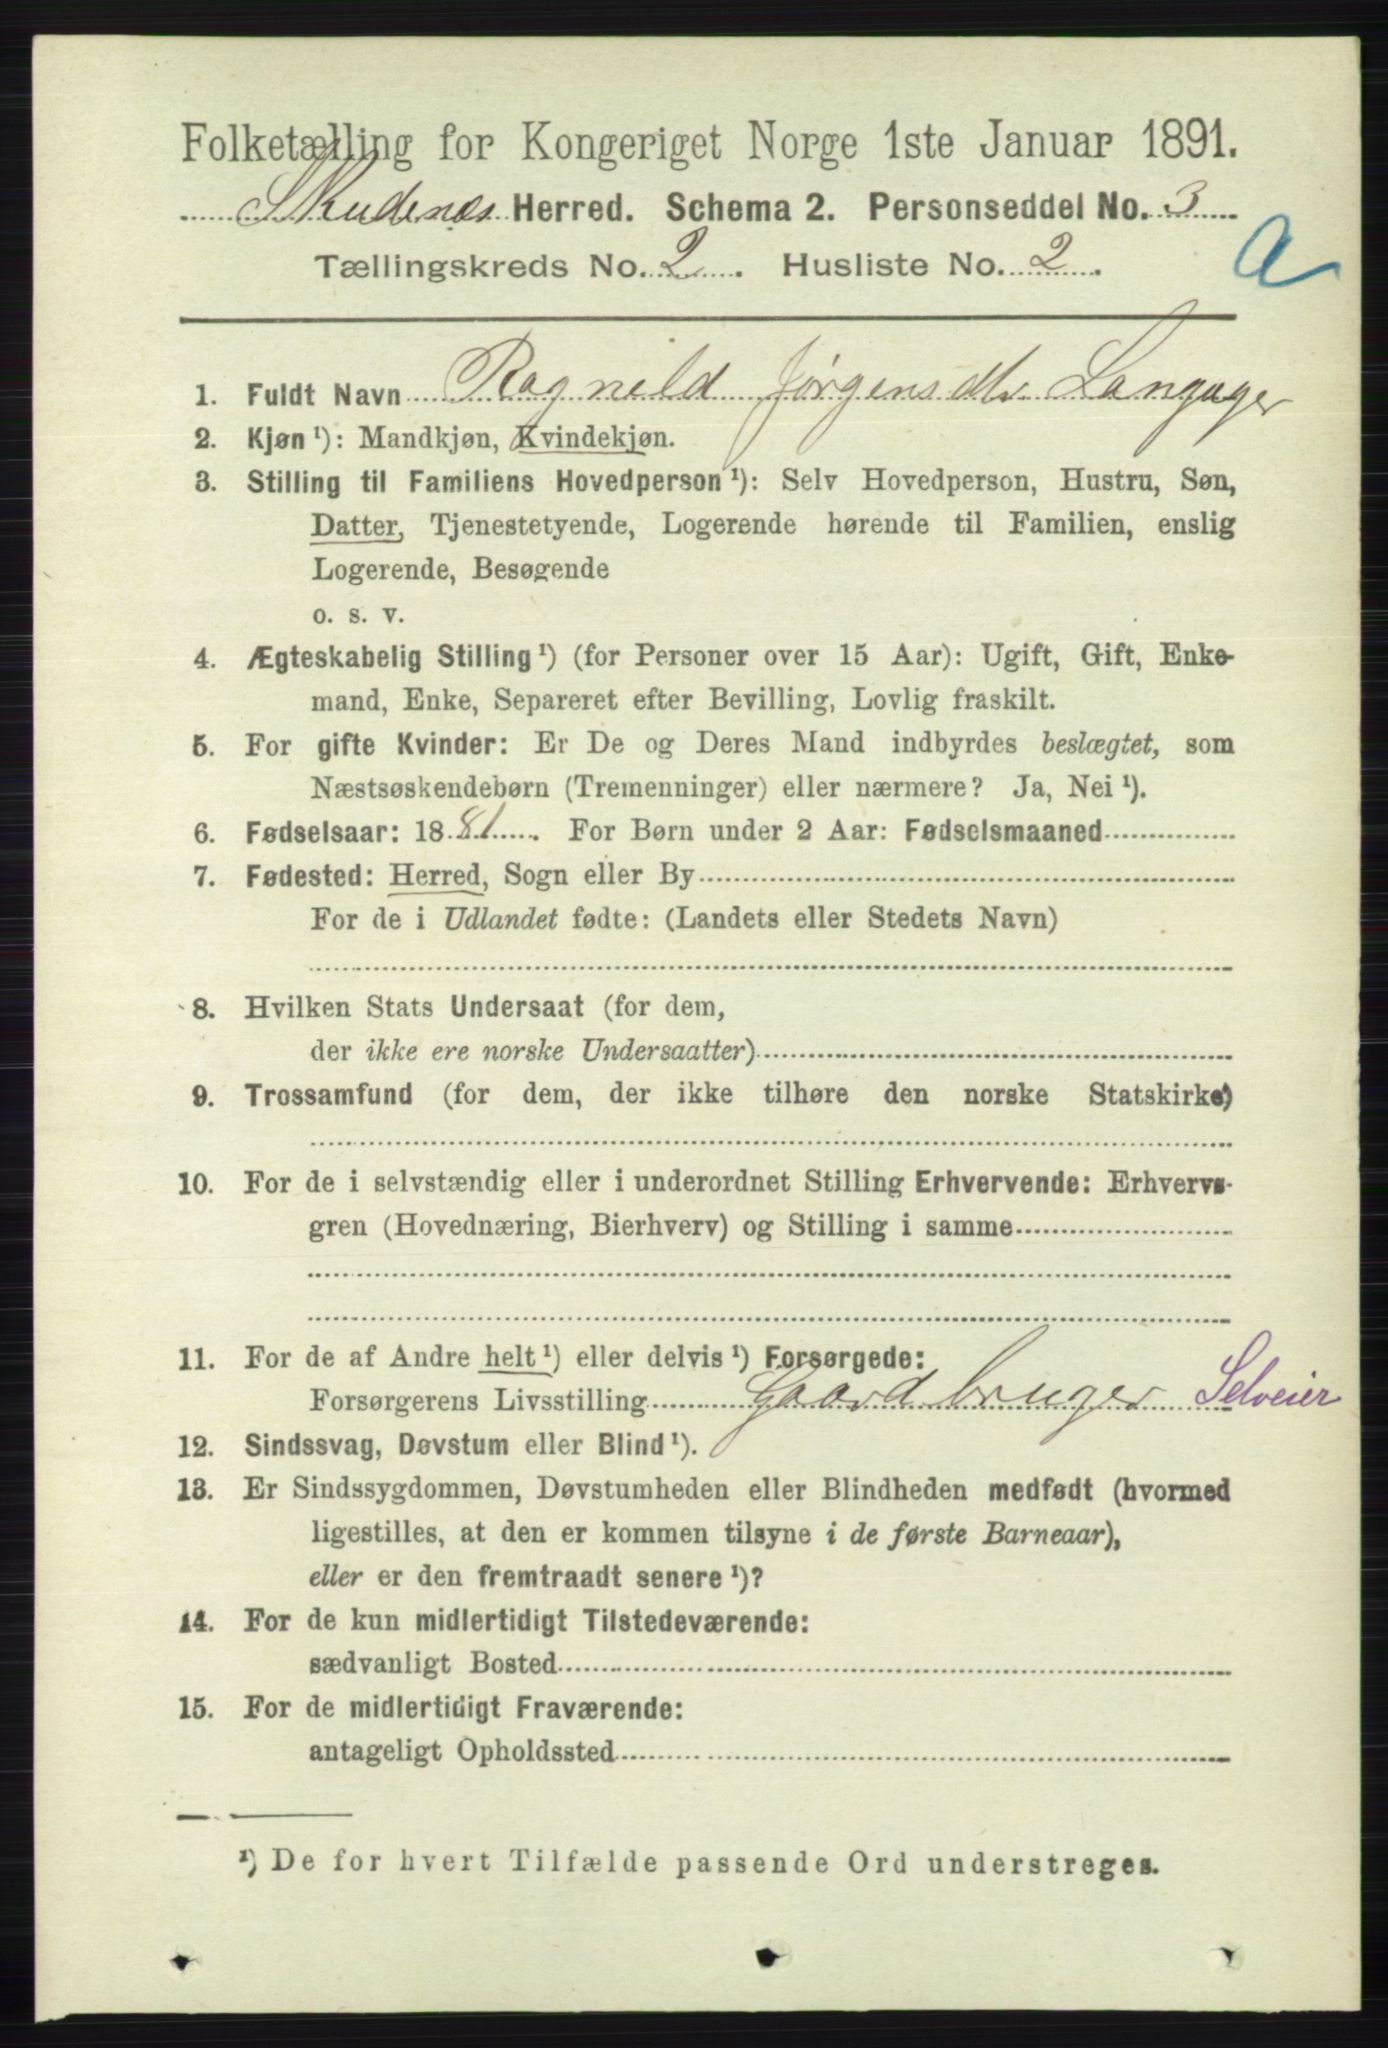 Folketælling for Kongeriget Norge 1ste Januar 1891.
Skudenæs Herred. Schema 2. Personseddel No. 3
Tællingskreds No. 2. Husliste No. 2.
a
1. Fuldt Navn Ragnild Jørgensdtr Langager
2. Kjøn ¹): Mandkjøn, Kvindekjøn.
3. Stilling til Familiens Hovedperson ¹): Selv Hovedperson, Hustru, Søn,
Datter, Tjenestetyende, Logerende hørende til Familien, enslig
Logerende, Besøgende
o. s. v.
4. Ægteskabelig Stilling ¹) (for Personer over 15 Aar): Ugift, Gift, Enke-
mand, Enke, Separeret efter Bevilling, Lovlig fraskilt.
5. For gifte Kvinder: Er De og Deres Mand indbyrdes beslægtet, som
Næstsøskendebørn (Tremenninger) eller nærmere? Ja, Nei ¹).
6. Fødselsaar: 1881. For Børn under 2 Aar: Fødselsmaaned
7. Fødested: Herred, Sogn eller By
For de i Udlandet fødte: (Landets eller Stedets Navn)
8. Hvilken Stats Undersaat (for dem,
der ikke ere norske Undersaatter)
9. Trossamfund (for dem, der ikke tilhøre den norske Statskirke)
10. For de i selvstændig eller i underordnet Stilling Erhvervende: Erhvervs-
gren (Hovednæring, Bierhverv) og Stilling i samme
11. For de af Andre helt ¹) eller delvis ¹) Forsørgede:
Forsørgerens Livsstilling Gaardbruger Selveier
12. Sindssvag, Døvstum eller Blind ¹).
13. Er Sindssygdommen, Døvstumheden eller Blindheden medfødt (hvormed
ligestilles, at den er kommen tilsyne i de første Barneaar),
eller er den fremtraadt senere ¹)?
14. For de kun midlertidigt Tilstedeværende:
sædvanligt Bosted
15. For de midlertidigt Fraværende:
antageligt Opholdssted
¹) De for hvert Tilfælde passende Ord understreges.